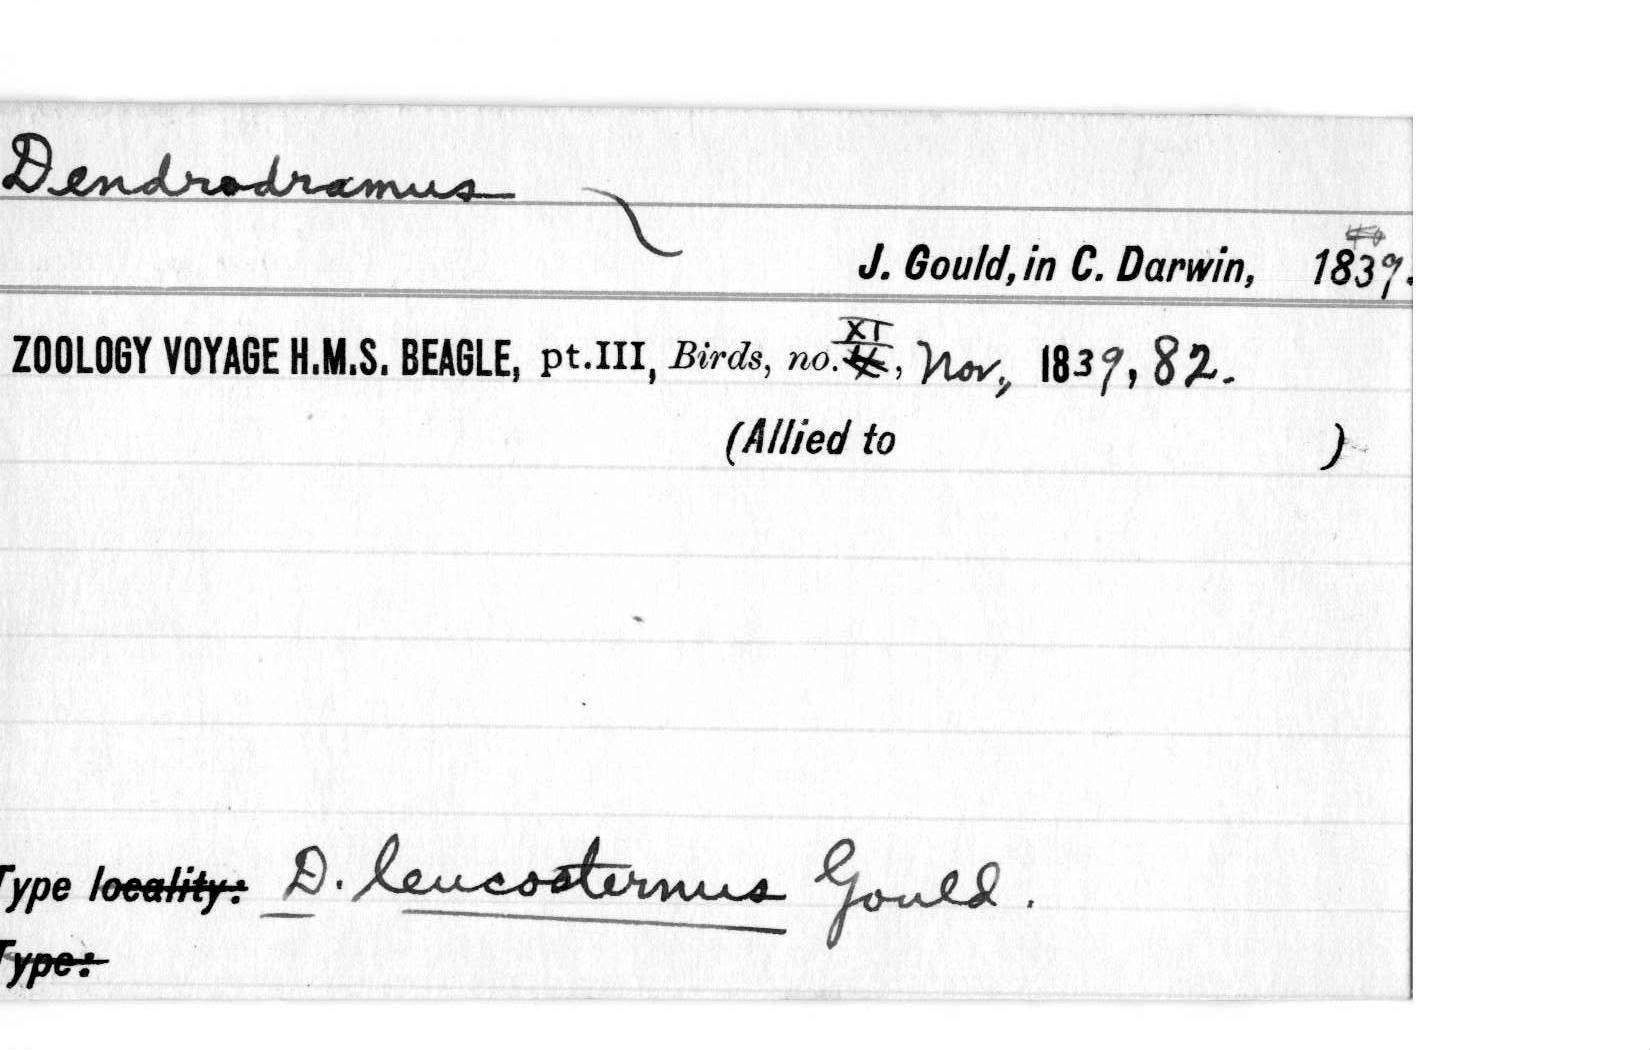 Dendrodramus
J. Gould, in C. Darwin, 1839.
ZOOLOGY VOYAGE H.M.S. BEAGLE, pt.III, Birds, no. XI, Nov., 1839, 82.
(Allied to )
Type locality: D. leucosternus Gould.
Type: